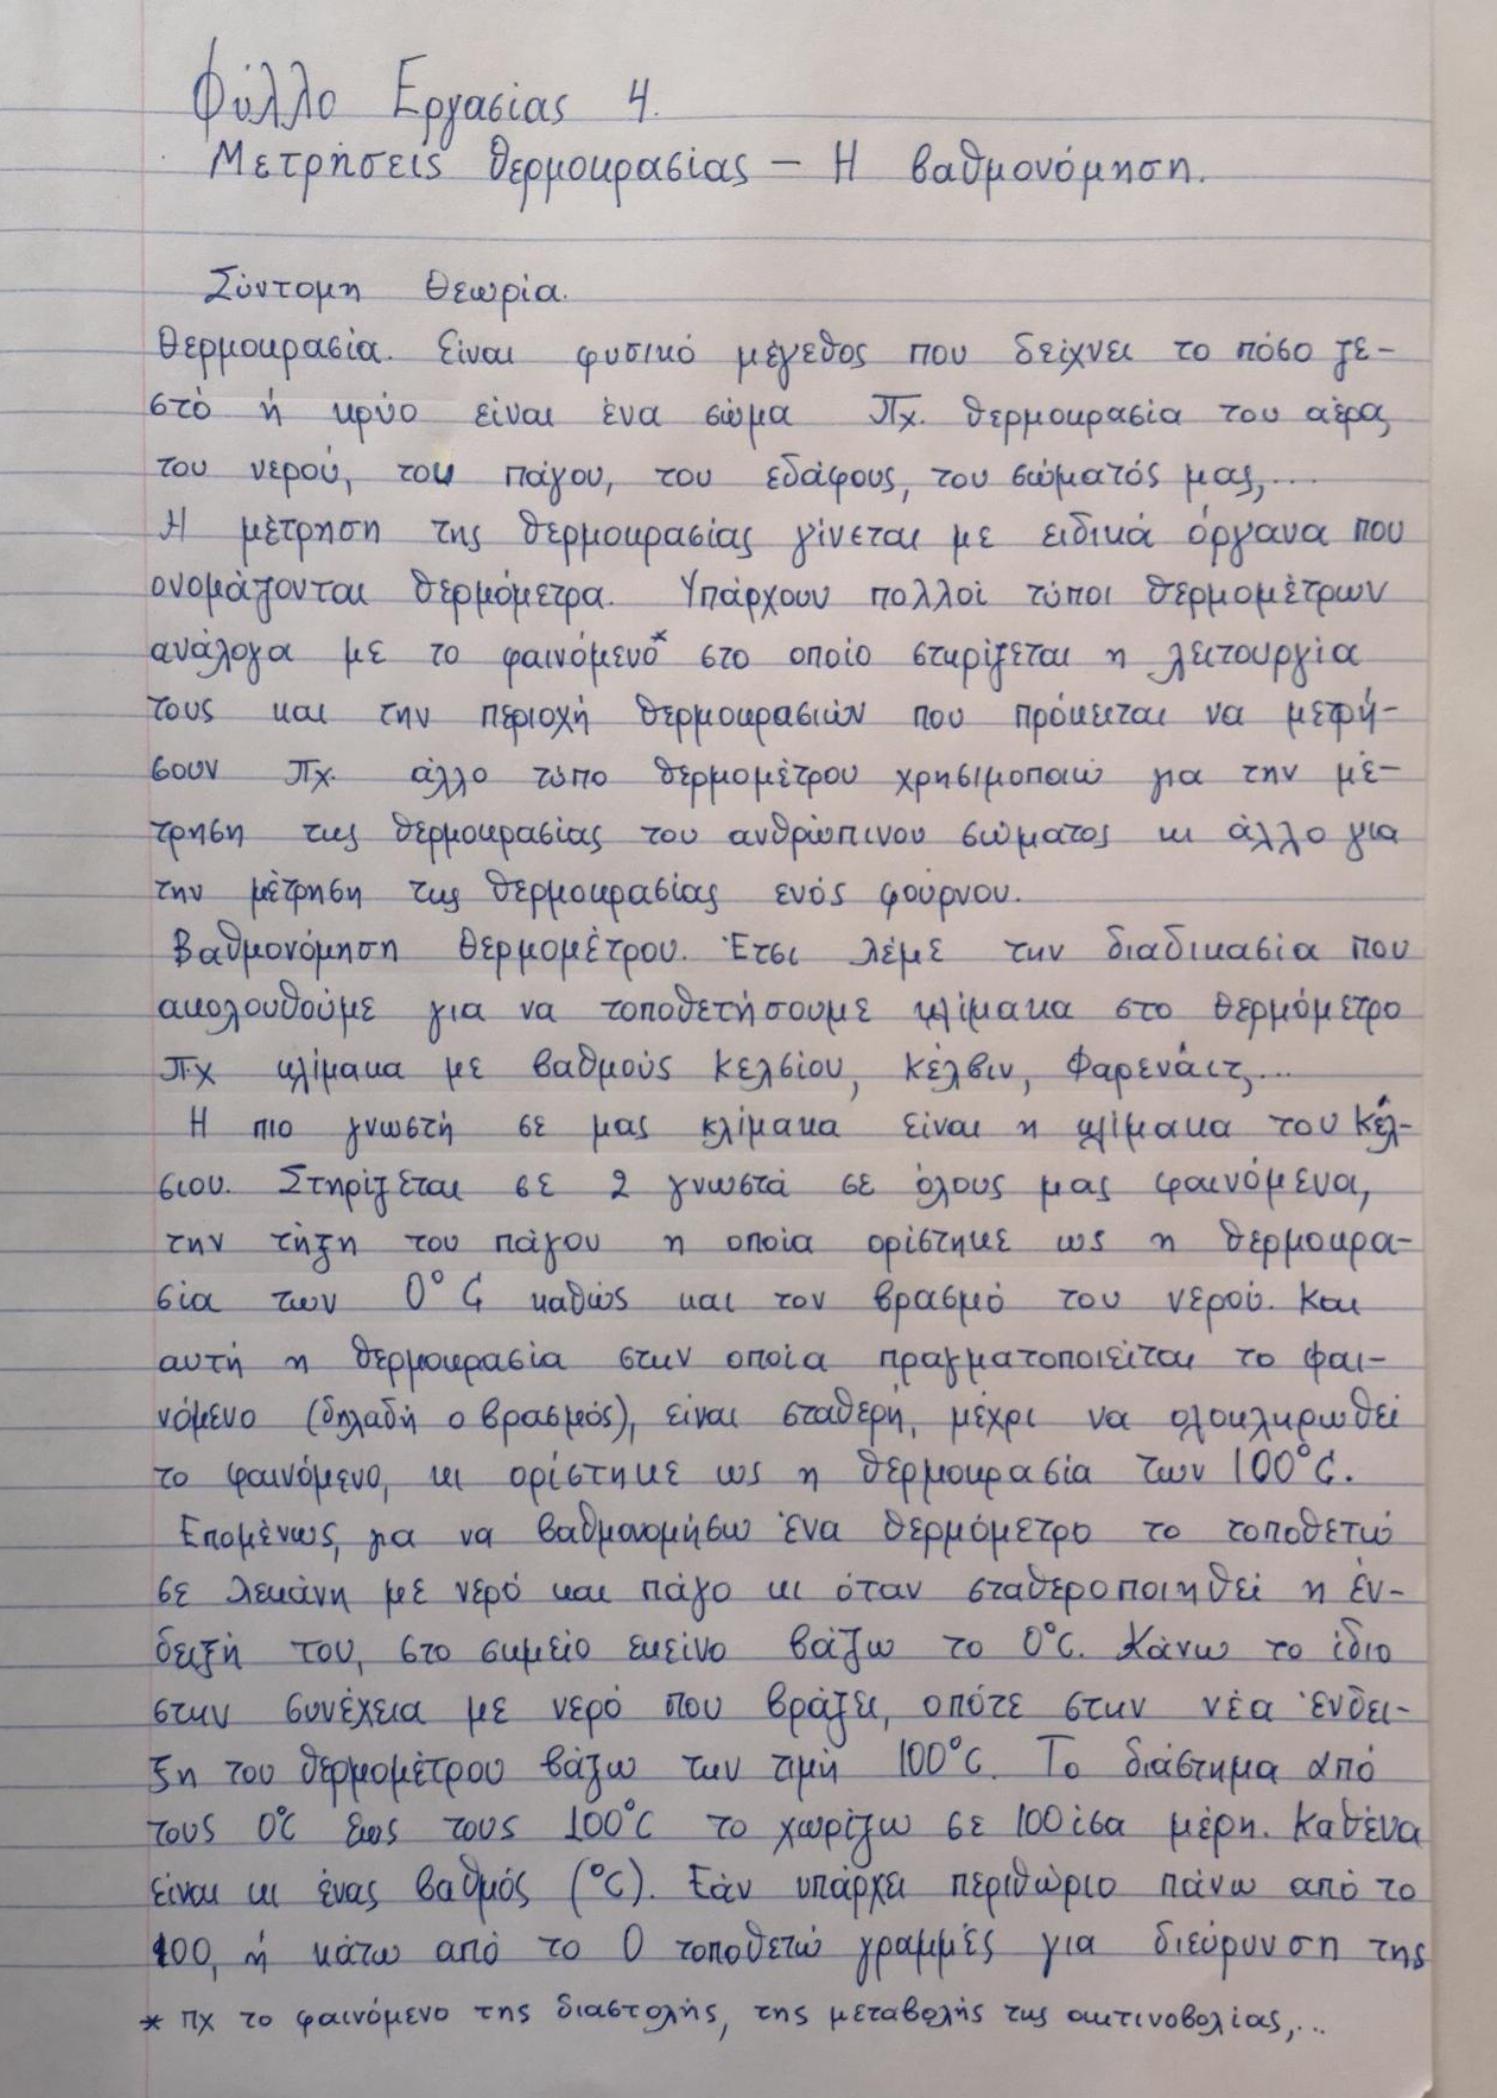 Φύλλο Εργασίας 4.
Μετρήσεις θερμοκρασίας – Η βαθμονόμηση.
Σύντομη θεωρία.
Θερμοκρασία. Είναι φυσικό μέγεθος που δείχνει το πόσο ζε-
στό ή κρύο είναι ένα σώμα Πχ. θερμοκρασία του αέρα,
του νερού, του πάγου, του εδάφους, του σώματός μας,...
Η μέτρηση της θερμοκρασίας γίνεται με ειδικά όργανα που
ονομάζονται θερμόμετρα. Υπάρχουν πολλοί τύποι θερμομέτρων
ανάλογα με το φαινόμενο* στο οποίο στηρίζεται η λειτουργία
τους και την περιοχή θερμοκρασιών που πρόκειται να μετρή-
σουν Πχ. άλλο τύπο θερμομέτρου χρησιμοποιώ για την μέ-
τρηση της θερμοκρασίας του ανθρώπινου σώματος κι άλλο για
την μέτρηση της θερμοκρασίας ενός φούρνου.
Βαθμονόμηση θερμομέτρου. Έτσι λέμε την διαδικασία που
ακολουθούμε για να τοποθετήσουμε κλίμακα στο θερμόμετρο
Π.χ κλίμακα με βαθμούς Κελσίου, Κέλβιν, Φαρενάιτ,...
Η πιο γνωστή σε μας κλίμακα είναι η κλίμακα του Κέλ-
σιου. Στηρίζεται σε 2 γνωστά σε όλους μας φαινόμενα,
την τήξη του πάγου η οποία ορίστηκε ως η θερμοκρα-
σία των 0°C καθώς και τον βρασμό του νερού. Και
αυτή η θερμοκρασία στην οποία πραγματοποιείται το φαι-
νόμενο (δηλαδή ο βρασμός), είναι σταθερή, μέχρι να ολοκληρωθεί
το φαινόμενο, κι ορίστηκε ως η θερμοκρασία των 100°C.
Επομένως, για να βαθμονομήσω ένα θερμόμετρο το τοποθετώ
σε λεκάνη με νερό και πάγο κι όταν σταθεροποιηθεί η έν-
δειξή του, στο σημείο εκείνο βάζω το 0°C. Κάνω το ίδιο
στην συνέχεια με νερό που βράζει, οπότε στην νέα ένδει-
ξη του θερμομέτρου βάζω την τιμή 100°C. Το διάστημα από
τους 0°C έως τους 100°C το χωρίζω σε 100 ίσα μέρη. Καθένα
είναι κι ένας βαθμός (°C). Εάν υπάρχει περιθώριο πάνω από το
100, ή κάτω από το 0 τοποθετώ γραμμές για διεύρυνση της
* πχ το φαινόμενο της διαστολής, της μεταβολής της ακτινοβολίας,...